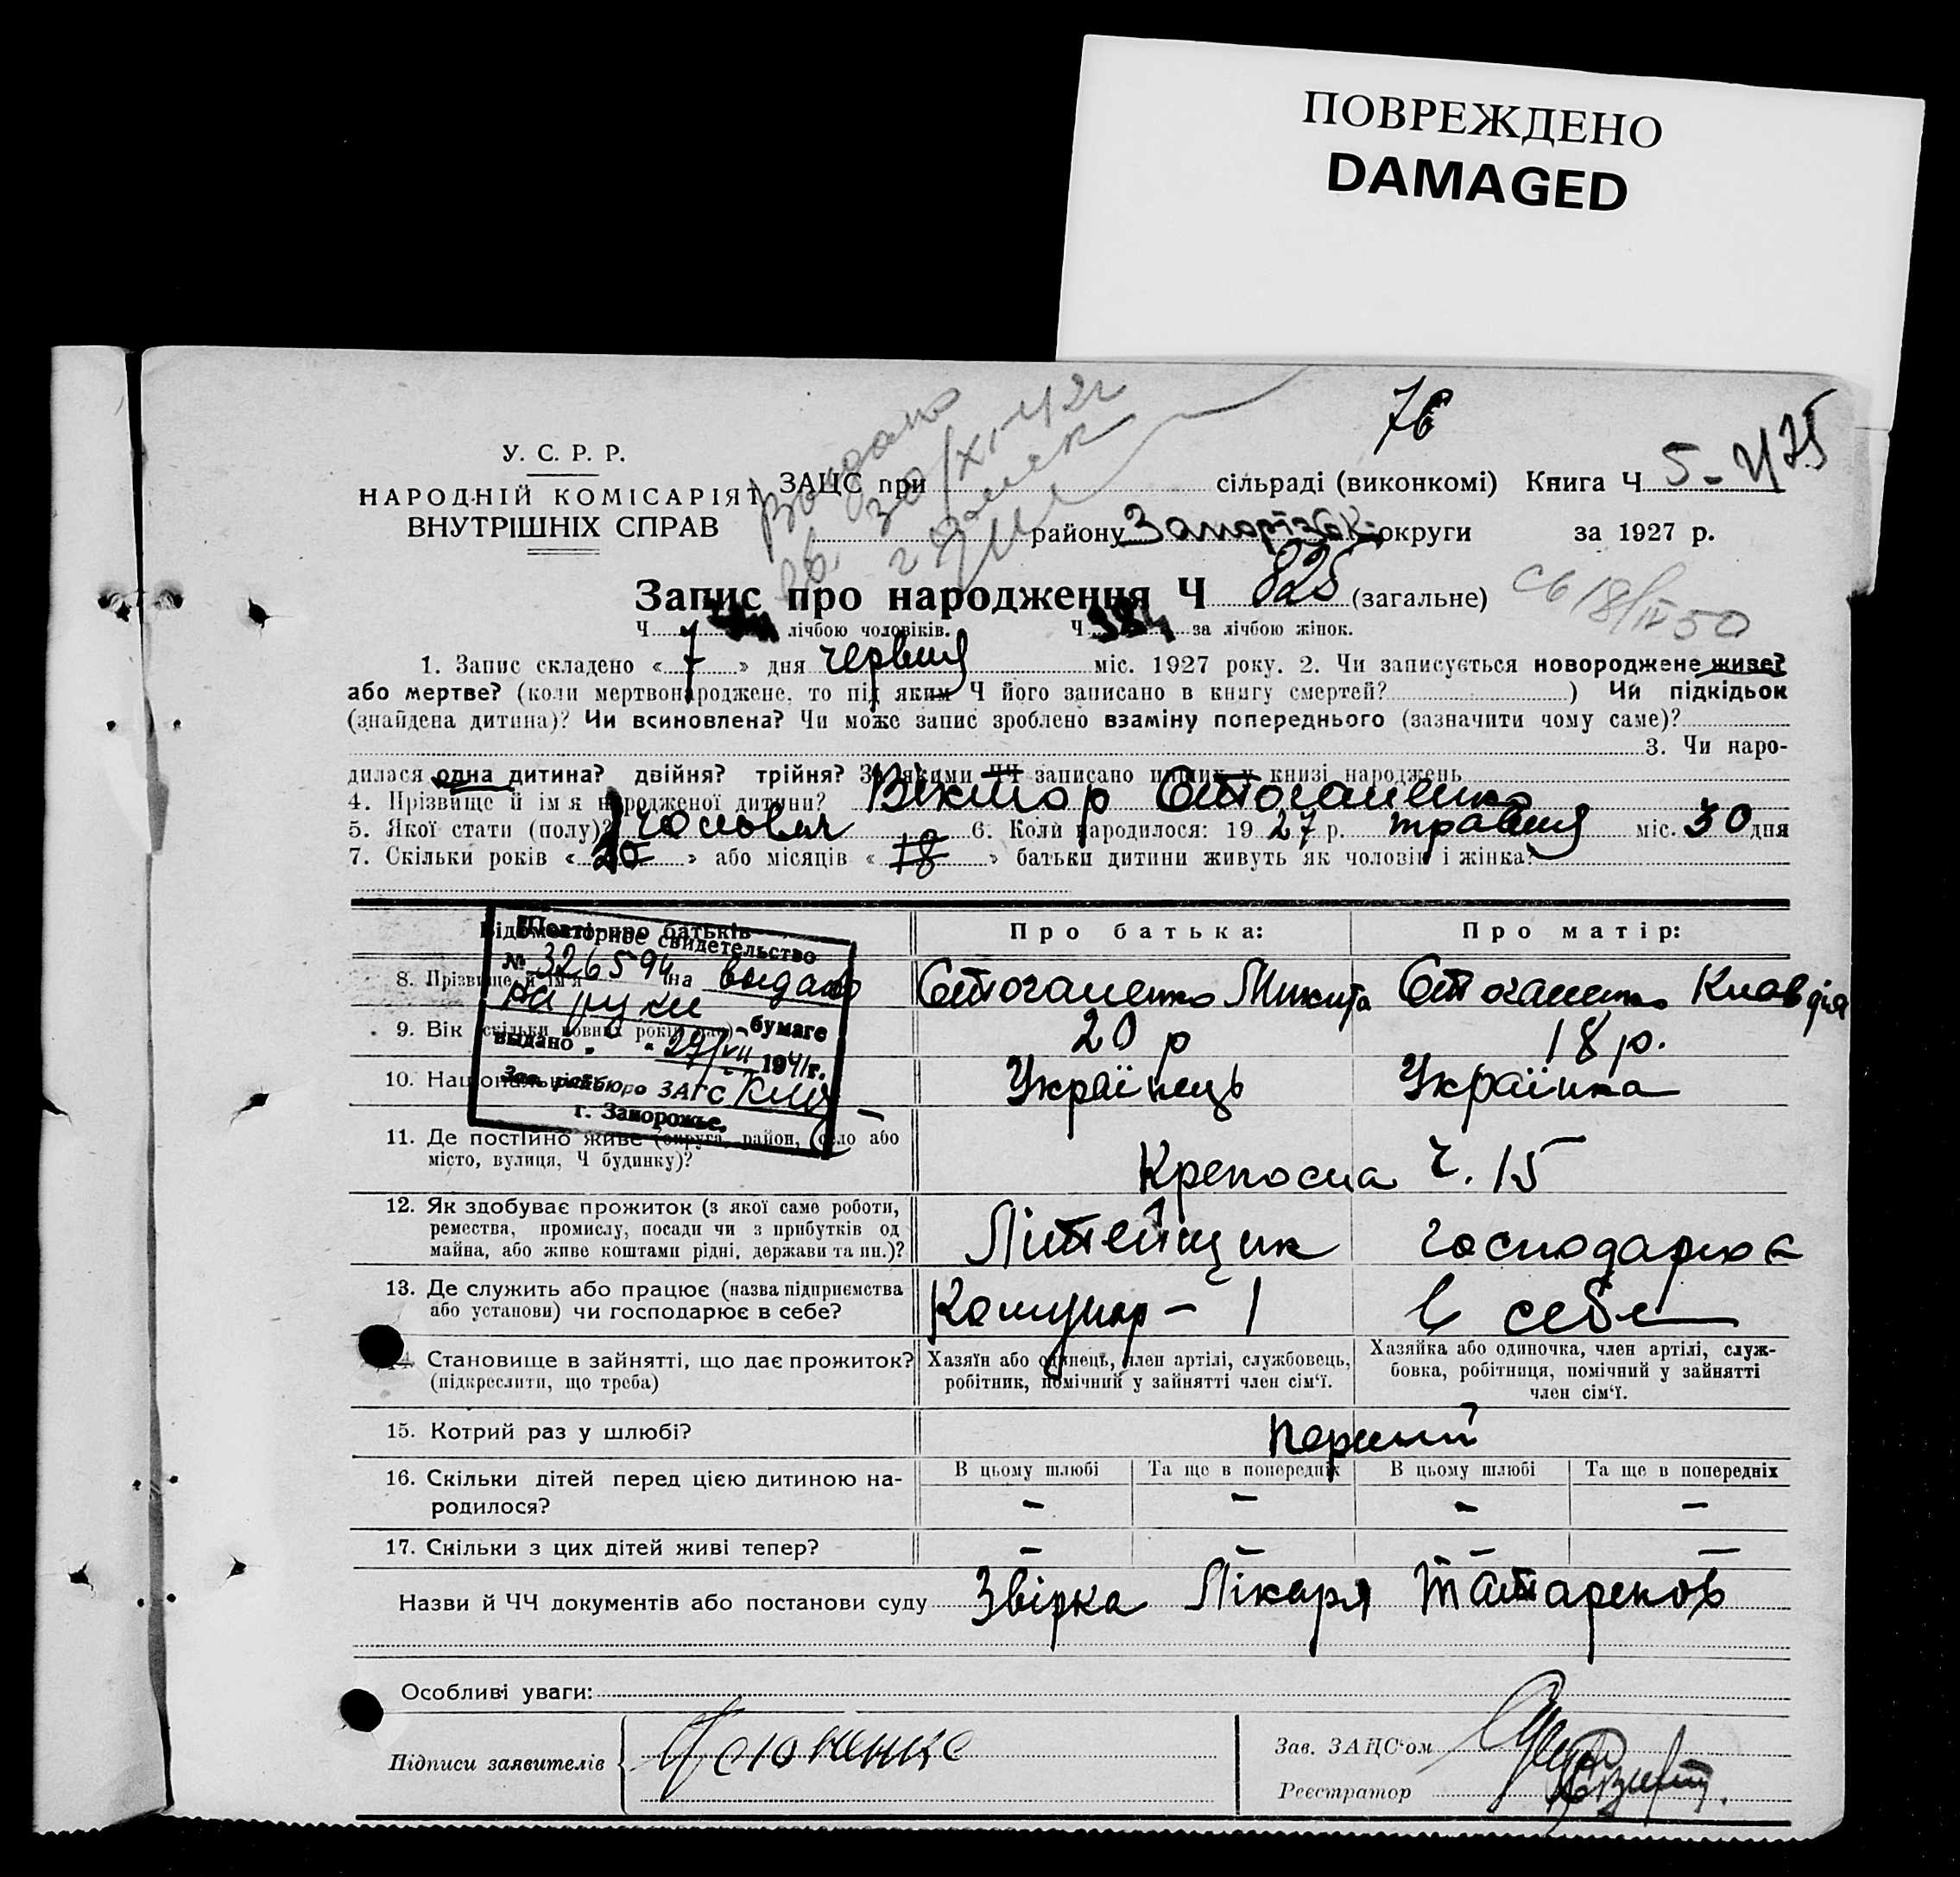 ПОВРЕЖДЕНО
DAMAGED
76
У. С. Р. Р.
НАРОДНІЙ КОМІСАРІЯТ
ВНУТРІШНІХ СПРАВ
Видано
30/XI-42г
ЗАЦС при сільраді (виконкомі) Книга Ч 5-
району Запорізьк. округи за 1927 р.
Запис про народження Ч 825 (загальне)
св 18/IV 50
Ч лічбою чоловіків. Ч 384 за лічбою жінок.
1. Запис складено « 7 » дня червня міс. 1927 року. 2. Чи записується новороджене живе?
або мертве? (коли мертвонароджене, то під яким Ч його записано в книгу смертей? ) Чи підкідьок
(знайдена дитина)? Чи всиновлена? Чи може запис зроблено взаміну попереднього (зазначити чому саме)?
3. Чи наро-
дилася одна дитина? двійня? трійня? За якими ЧЧ записано инших у книзі народжень
4. Прізвище й ім'я народженої дитини? Віктор Стоганенко
5. Якої стати (полу)? чоловіч 6. Коли народилося: 19 27 р. травня міс. 30 дня
7. Скільки років « 20 » або місяців « 18 » батьки дитини живуть як чоловік і жінка?
Відомості про батьків Про батька: Про матір:
Повторное свидетельство
№ 326594 на выдано
на руки бумаге
выдано „ “ 29/VII 1941г.
Зав. райбюро ЗАГС
г. Запорожье.
8. Прізвище й ім'я Стоганенко Микита Стоганенко Клавдія
9. Вік (скільки повних років має) 20 р 18 р.
10. Національність Українець Українка
11. Де постійно живе (округа, район, село або
місто, вулиця, Ч будинку)? Крепосна ч. 15
12. Як здобуває прожиток (з якої саме роботи,
ремества, промислу, посади чи з прибутків од
майна, або живе коштами рідні, держави та ин.)? Літейщик господарює
13. Де служить або працює (назва підприємства
або установи) чи господарює в себе? Комунар - 1 в себе
14. Становище в зайнятті, що дає прожиток?
(підкреслити, що треба)
Хазяїн або одинець, член артілі, службовець,
робітник, помічний у зайнятті член сім'ї.
Хазяйка або одиночка, член артілі, служ-
бовка, робітниця, помічний у зайнятті
член сім'ї.
15. Котрий раз у шлюбі? перший
16. Скільки дітей перед цією дитиною на-
родилося?
В цьому шлюбі Та ще в попередніх В цьому шлюбі Та ще в попередніх
- - - -
17. Скільки з цих дітей живі тепер? - - - -
Назви й ЧЧ документів або постанови суду Звірка Лікаря Татаренов
Особливі уваги:
Підписи заявителів
Зав. ЗАЦС'ом
Реєстратор